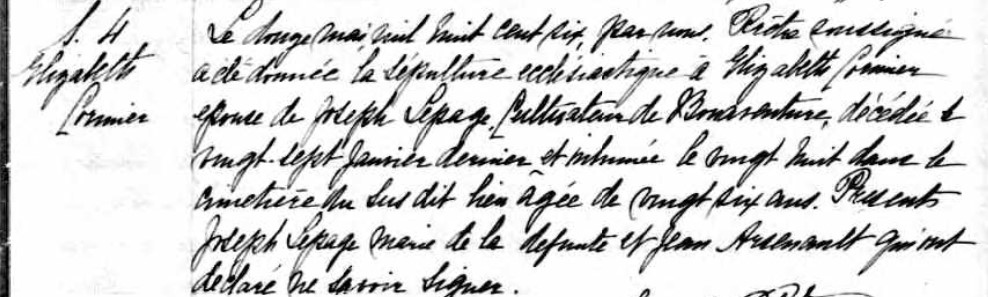 S. 4
Elizabeth
Cormier
Le douze mai mil huit cent six, par nous, Prêtre soussigné
a été donnée la sépulture ecclésiastique à Elizabeth Cormier
épouse de Joseph Lepage, Cultivateur de Bonaventure, décédée le
vingt-sept Janvier dernier et inhumée le vingt huit dans le
cimetière du sus dit lieu âgée de vingt six ans. Présents
Joseph Lepage marie de la defunte et Jean Arsenault qui ont
déclaré ne savoir signer.